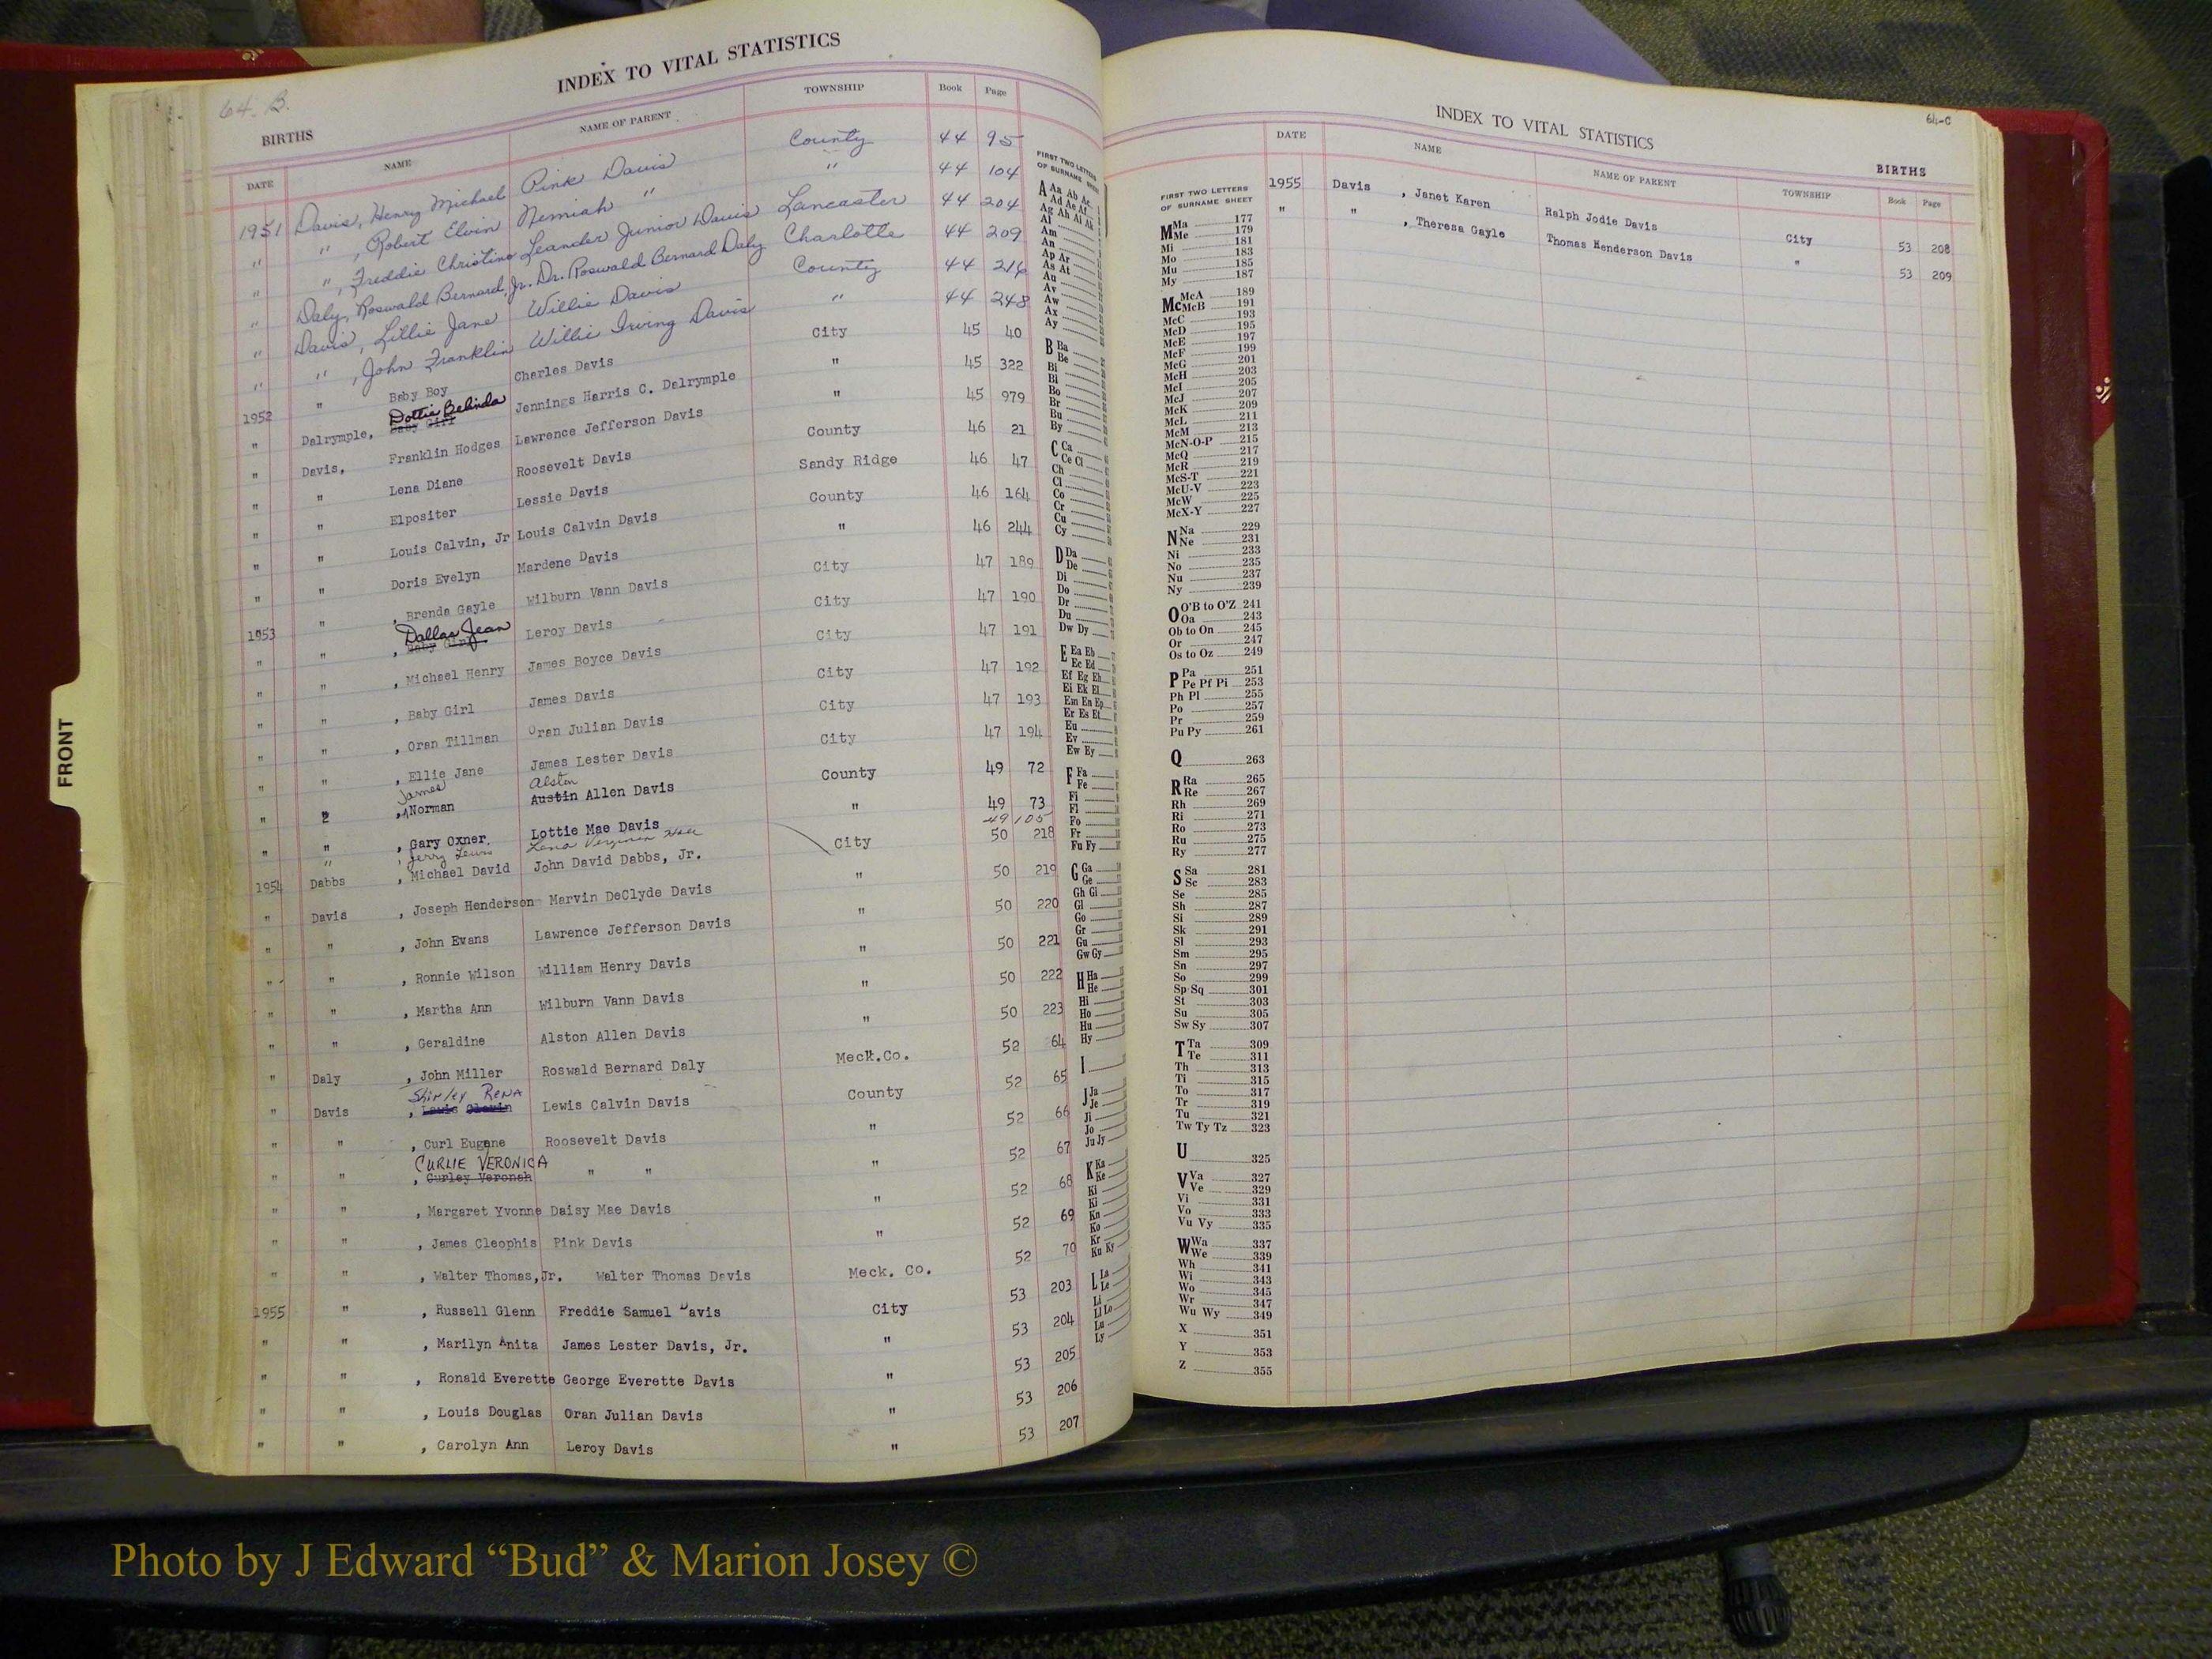 INDEX TO VITAL STATISTICS
64. B.
BIRTHS
DATE NAME NAME OF PARENT TOWNSHIP Book Page
1951 Davis, Henry Michael Pink Davis County 44 95
" " , Robert Elvin Nemiah " " 44 104
" " , Freddie Christine Leander Junior Davis Lancaster 44 204
" Daly, Roswald Bernard, Jr. Dr. Roswald Bernard Daly Charlotte 44 209
" Davis, Lillie Jane Willie Davis County 44 216
" " , John Franklin Willie Irving Davis " 44 248
1952 " Baby Boy Charles Davis City 45 40
" Dalrymple, Dottie Belinda Baby Girl Jennings Harris C. Dalrymple " 45 322
" Davis, Franklin Hodges Lawrence Jefferson Davis " 45 979
" " Lena Diane Roosevelt Davis County 46 21
" " Elpositer Lessie Davis Sandy Ridge 46 47
" " Louis Calvin, Jr Louis Calvin Davis County 46 164
" " Doris Evelyn Mardene Davis " 46 244
1953 " , Brenda Gayle Wilburn Vann Davis City 47 189
" " , Dallas Jean Baby Girl Leroy Davis City 47 190
" " , Michael Henry James Boyce Davis City 47 191
" " , Baby Girl James Davis City 47 192
" " , Oran Tillman Oran Julian Davis City 47 193
" " , Ellie Jane James Lester Davis City 47 194
" " , James Norman Alston Austin Allen Davis County 49 72
" " , Gary Oxner Lottie Mae Davis " 49 73
" , Jerry Lewis Lena Virginia 49 105
1954 Dabbs , Michael David John David Dabbs, Jr. City 50 218
" Davis , Joseph Henderson Marvin DeClyde Davis " 50 219
" " , John Evans Lawrence Jefferson Davis " 50 220
" " , Ronnie Wilson William Henry Davis " 50 221
" " , Martha Ann Wilburn Vann Davis " 50 222
" " , Geraldine Alston Allen Davis " 50 223
" Daly , John Miller Roswald Bernard Daly Meck.Co. 52 64
" Davis , Shirley Rena Lewis Davis Lewis Calvin Davis County 52 65
" " , Curl Eugene Roosevelt Davis " 52 66
" " , CURLIE VERONICA Curley Veronah " " " 52 67
" " , Margaret Yvonne Daisy Mae Davis " 52 68
" " , James Cleophis Pink Davis " 52 69
" " , Walter Thomas,Jr. Walter Thomas Davis Meck. Co. 52 70
1955 " , Russell Glenn Freddie Samuel Davis City 53 203
" " , Marilyn Anita James Lester Davis, Jr. " 53 204
" " , Ronald Everette George Everette Davis " 53 205
" " , Louis Douglas Oran Julian Davis " 53 206
" " , Carolyn Ann Leroy Davis " 53 207
FRONT
FIRST TWO LETTERS
OF SURNAME SHEET
A Aa Ab Ac
Ad Ae Af
Ag Ah Ai Ak
Al
Am
An
Ap Ar
As At
Au
Av
Aw
Ax
Ay
B Ba
Be
Bi
Bl
Bo
Br
Bu
By
C Ca
Ce Ci
Ch
Cl
Co
Cr
Cu
Cy
D Da
De
Di
Do
Dr
Du
Dw Dy
E Ea Eb
Ec Ed
Ef Eg Eh
Ei Ek El
Em En Ep
Er Es Et
Eu
Ev
Ew Ey
F Fa
Fe
Fi
Fl
Fo
Fr
Fu Fy
G Ga
Ge
Gh Gi
Gl
Go
Gr
Gu
Gw Gy
H Ha
He
Hi
Ho
Hu
Hy
I
J Ja
Je
Ji
Jo
Ju Jy
K Ka
Ke
Ki
Kl
Kn
Ko
Kr
Ku Ky
L La
Le
Li
Ll Lo
Lu
Ly
INDEX TO VITAL STATISTICS
64-C
BIRTHS
DATE NAME NAME OF PARENT TOWNSHIP Book Page
1955 Davis , Janet Karen Ralph Jodie Davis City 53 208
" " , Theresa Gayle Thomas Henderson Davis " 53 209
FIRST TWO LETTERS
OF SURNAME SHEET
M Ma 177
Me 179
Mi 181
Mo 183
Mu 185
My 187
Mc McA 189
McB 191
McC 193
McD 195
McE 197
McF 199
McG 201
McH 203
McI 205
McJ 207
McK 209
McL 211
McM 213
McN-O-P 215
McQ 217
McR 219
McS-T 221
McU-V 223
McW 225
McX-Y 227
N Na 229
Ne 231
Ni 233
No 235
Nu 237
Ny 239
O O'B to O'Z 241
Oa 243
Ob to On 245
Or 247
Os to Oz 249
P Pa 251
Pe Pf Pi 253
Ph Pl 255
Po 257
Pr 259
Pu Py 261
Q 263
R Ra 265
Re 267
Rh 269
Ri 271
Ro 273
Ru 275
Ry 277
S Sa 281
Sc 283
Se 285
Sh 287
Si 289
Sk 291
Sl 293
Sm 295
Sn 297
So 299
Sp Sq 301
St 303
Su 305
Sw Sy 307
T Ta 309
Te 311
Th 313
Ti 315
To 317
Tr 319
Tu 321
Tw Ty Tz 323
U 325
V Va 327
Ve 329
Vi 331
Vo 333
Vu Vy 335
W Wa 337
We 339
Wh 341
Wi 343
Wo 345
Wr 347
Wu Wy 349
X 351
Y 353
Z 355
Photo by J Edward “Bud” & Marion Josey ©